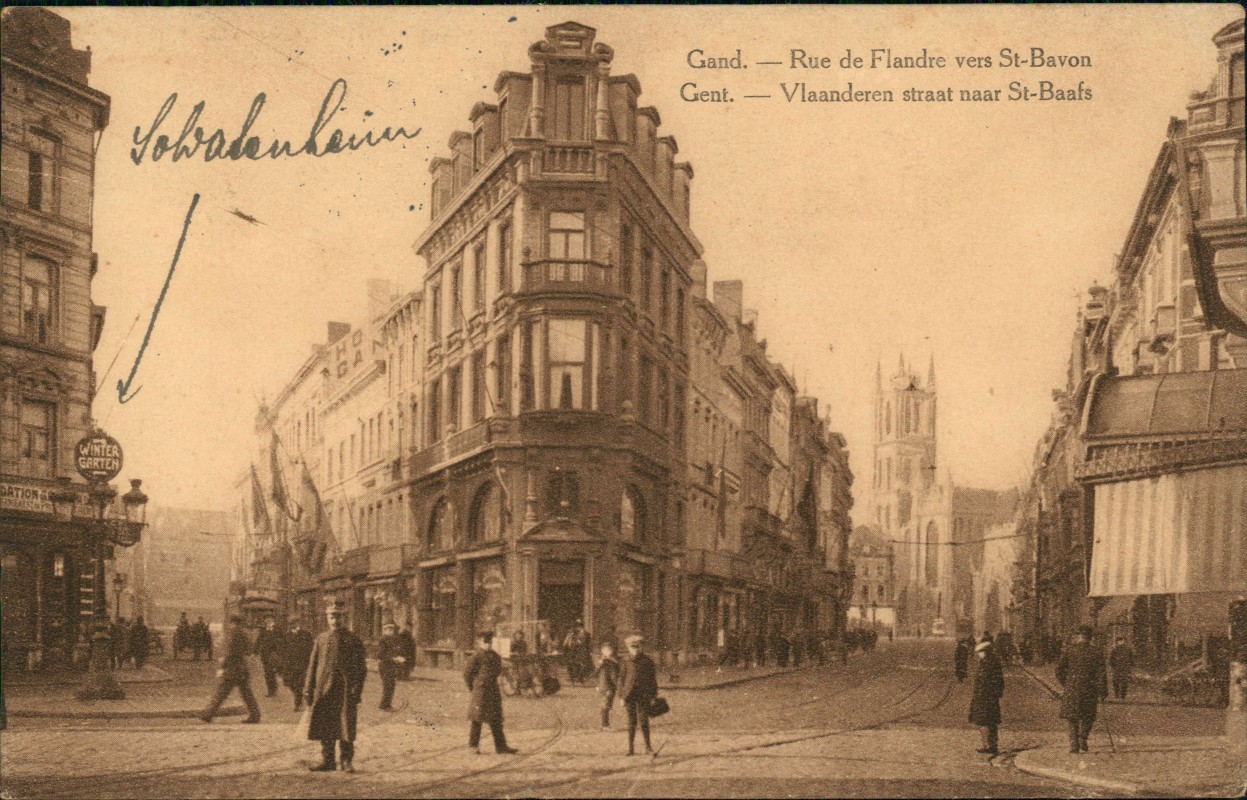 Gand. — Rue de Flandre vers St-Bavon
Gent. — Vlaanderen straat naar St-Baafs
Soldatenheim
WINTER
GARTEN
HO
GAN